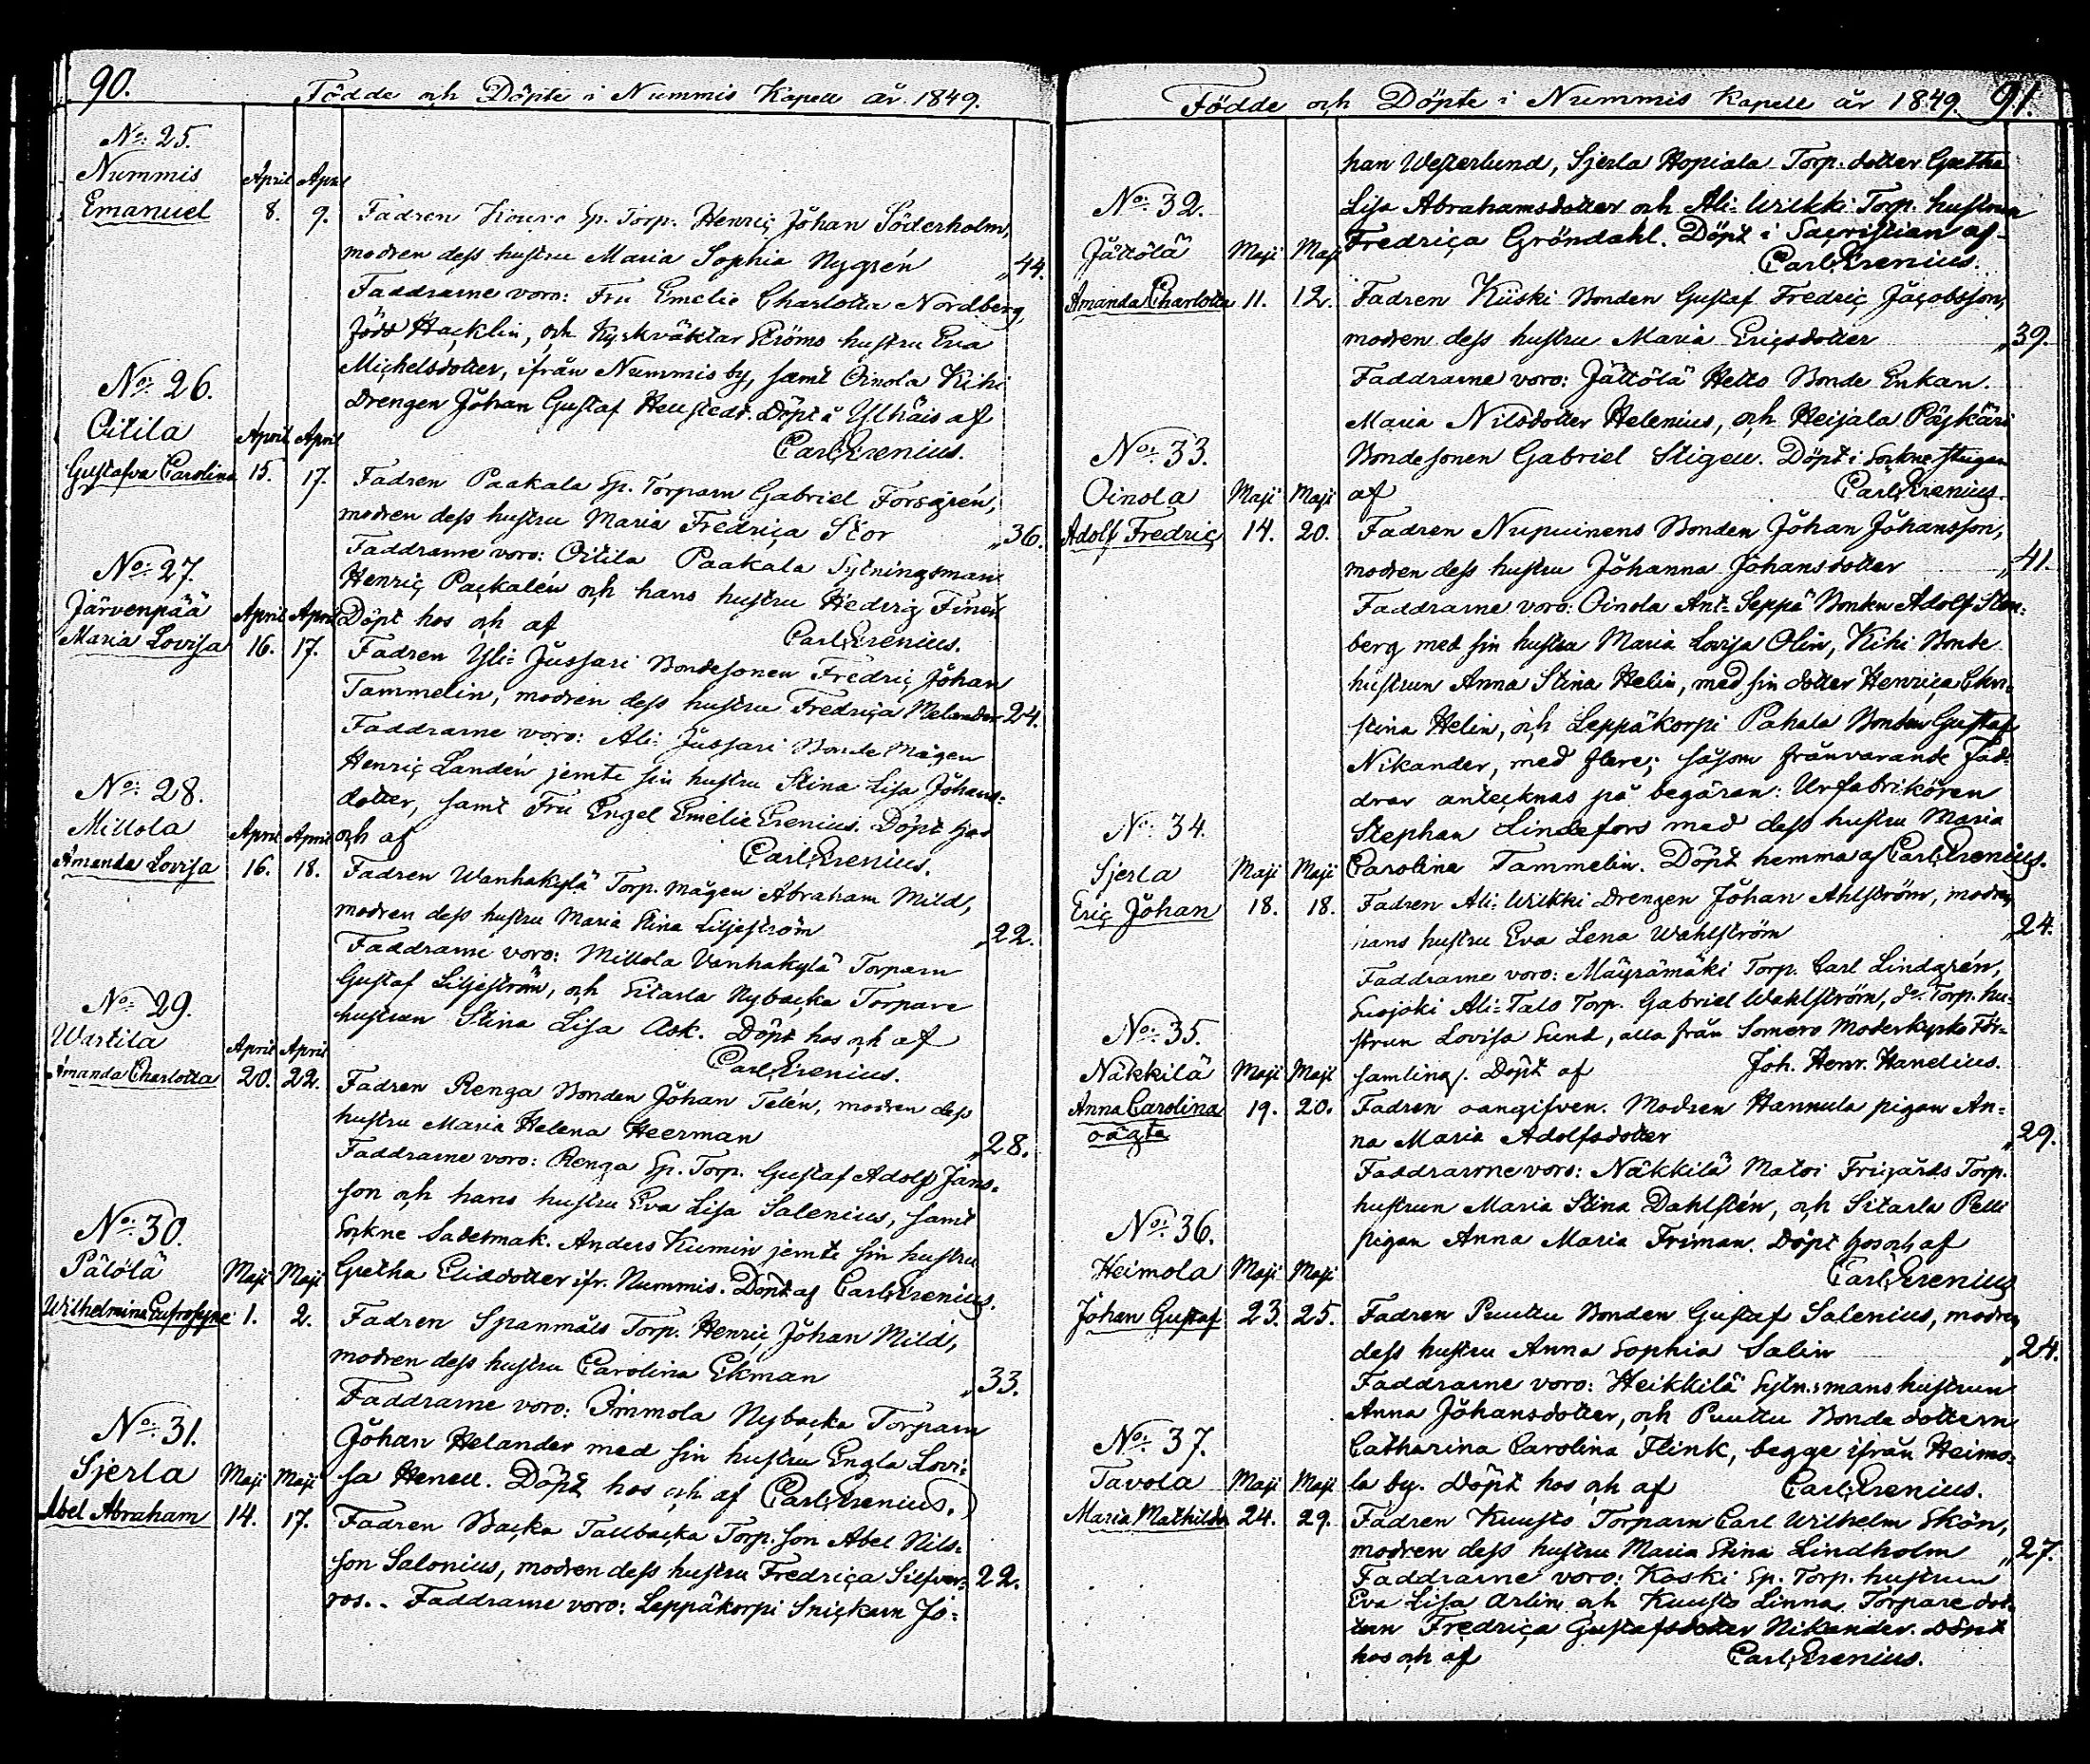 90.
Födde och Döpte i Nummis Kapell år 1849.
No: 25.
Nummis April April
Emanuel 8. 9. Fadren Sp. Torp. Henriç Johan Söderholm,
modren dess hustru Maria Sophia Nygrén „44.
Faddrarne voro: Fru Emelie Charlotta Nordberg,
född Haçklin, och Kyrkväktar Ströms hustru Eva
Miçhelsdotter, ifrån Nummis by, samt Oinola Kihi
Drengen Johan Gustaf Hellstedt. Döpt i Ylhäis af
Carl Erenius.
No: 26.
Oitila April April
Gustafva Carolina 15. 17. Fadren Paakala Sp. Torparn Gabriel Forsgrén,
modren dess hustru Maria Fredriça Stor „36.
Faddrarne voro: Oitila Paakala Sytningsman
Henriç Paçkalén och hans hustru Hedvig
Döpt hos och af Carl Erenius.
No: 27.
Järvenpää April April
Maria Lovisa 16. 17. Fadren Yli-Jussari Bondesonen Fredriç Johan
Tammelin, modren dess hustru Fredriça Melander 24.
Faddrarne voro: Ali-Jussari Bonde Mågen
Henriç Landén jemte sin hustru Stina Lisa Johans-
dotter, samt Fru Engel Emelie Erenius. Döpt hos
och af Carl Erenius.
No: 28.
Millola April April
Amanda Lovisa 16. 18. Fadren Wanhakylä Torp. mågen Abraham Mild,
modren dess hustru Maria Stina Liljeström „22.
Faddrarne voro: Millola Vanhakylä Torparn
Gustaf Liljeström, och Sitarla Nybaçka Torpare
hustrun Stina Lisa Ask. Döpt hos och af
Carl Erenius.
No: 29.
Wartila April April
Amanda Charlotta 20. 22. Fadren Renga Bonden Johan Telén, modren dess
hustru Maria Helena Heerman „28.
Faddrarne voro: Renga Sp. Torp. Gustaf Adolf Jans-
son och hans hustru Eva Lisa Salenius, samt
Sokne Sadelmak. Anders Kumin jemte sin hustru
Gretha Elidsdotter ifr. Nummis. Döpt af Carl Erenius.
No: 30.
Pätölä Maji Maji
Wilhelmina Eufrosyne 1. 2. Fadren Spanmäls Torp. Henriç Johan Mild,
modren dess hustru Carolina Ekman „33.
Faddrarne voro: Immola Nybaçka Torparn
Johan Helander med sin hustru Engla Lovi-
sa Henell. Döpt hos och af Carl Erenius.
No: 31.
Sjerla Maji Maji
Abel Abraham 14. 17. Fadren Baçka Tallbaçka Torp. son Abel Nils-
son Salonius, modren dess hustru Fredriça Silfver- 22.
ros.. Faddrarne voro: Leppäkorpi Sniçkarn Jo-
Födde och Döpte i Nummis Kapell år 1849. 91.
han Westerlund, Sjerla Hopiala Torp. dotter Gretha
Lisa Abrahamsdotter och Ali-Wilkki Torp. hustrun
Fredriça Gröndahl. Döpt i Saçristian af
Carl Erenius.
No: 32.
Jättölä Maji Maji
Amanda Charlotta 11. 12. Fadren Kiiski Bonden Gustaf Fredriç Jaçobsson,
modren dess hustru Maria Eriçsdotter „39.
Faddrarne voro: Jättölä Hetto Bonde Enkan
Maria Nilsdotter Helenius, och Heijala Päykäri
Bondesonen Gabriel Stigell. Döpt i Sockne stugan
af Carl Erenius.
No: 33.
Oinola Maji Maji
Adolf Fredriç 14. 20. Fadren Nupuinens Bonden Johan Johansson,
modren dess hustru Johanna Johansdotter „41.
Faddrarne voro: Oinola Ant-Seppä Bonden Adolf Sten-
berg med sin hustru Maria Lovisa Olin, Kihi Bonde
hustrun Anna Stina Helin, med sin dotter Henriça Chri-
stina Helin, och Leppäkorpi Pahala Bonden Gustaf
Nikander, med flere; såsom frånvarande Fad-
drar antecknas på begäran: Urfabrikören
Stephan Lindefors med dess hustru Maria
Carolina Tammelin. Döpt hemma af Carl Erenius.
No: 34.
Sjerla Maji Maji
Eriç Johan 18. 18. Fadren Ali-Wilkki Drengen Johan Ahlström, modren
hans hustru Eva Lena Wahlström „24.
Faddrarne voro: Mäyrämäki Torp. Carl Lindgrén,
Suojoki Ali-Talo Torp. Gabriel Wahlström, d:o Torp. hu-
strun Lovisa Sund, alla från Somero Moderkyrko För-
samling. Döpt af Joh. Henr. Hanelius.
No: 35.
Näkkilä Maji Maji
Anna Carolina 19. 20. Fadren oangifven. Modren Hannula pigan An-
oägta
na Maria Adolfsdotter „29.
Faddrarne voro: Näkkilä Matoi Frigårds Torp.
hustrun Maria Stina Dahlstén, och Sitarla Pelli
pigan Anna Maria Friman. Döpt hos och af
Carl Erenius
No: 36.
Heimola Maji Maji
Johan Gustaf 23. 25. Fadren Puuttu Bonden Gustaf Salenius, modren
dess hustru Anna Sophia Salin „24.
Faddrarne voro: Heikkilä Sytn:s mans hustrun
Anna Johansdotter, och Puuttu Bonde dottern
Catharina Carolina Flink, begge ifrån Heimo-
la by. Döpt hos och af Carl Erenius.
No: 37.
Tavola Maji Maji
Maria Mathilda 24. 29. Fadren Kuusto Torparn Carl Wilhelm Skön,
modren dess hustru Maria Stina Lindholm „27.
Faddrarne voro: Koski Sp. Torp. hustrun
Eva Lisa Arlin och Kuusto Linna Torpare dot-
tern Fredriça Gustafsdotter Nikander. Döpt
hos och af Carl Erenius.